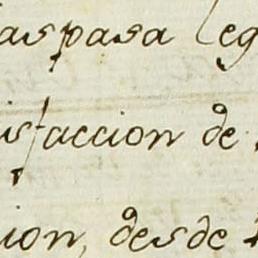 aspasa leg
isfaccion de
ion, desde